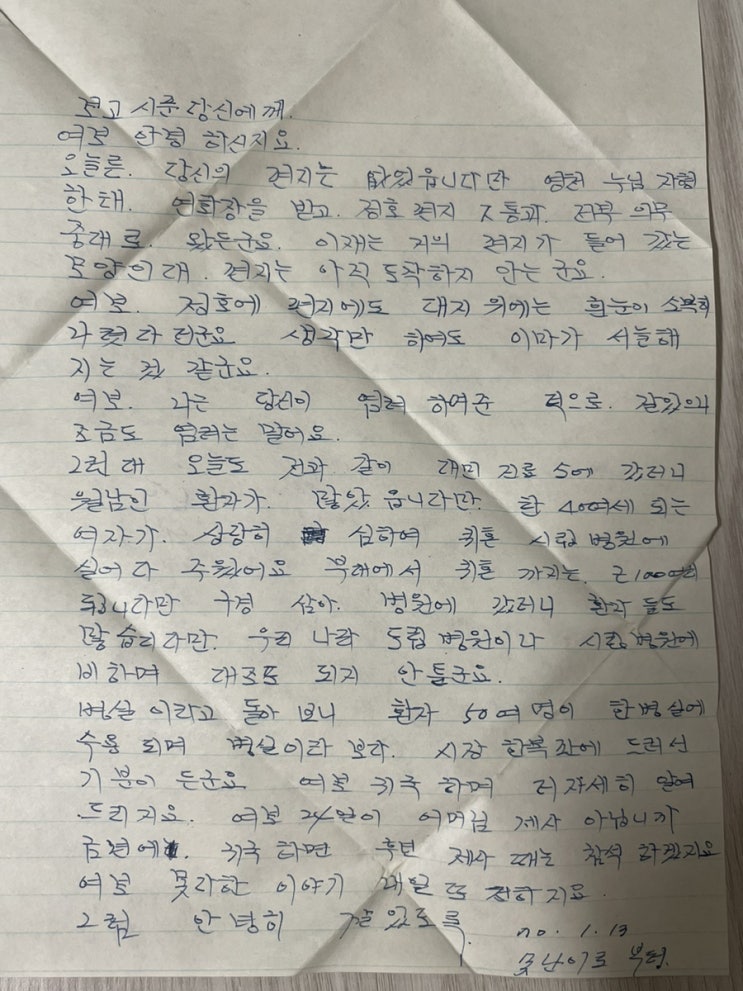 보고 시픈 당신에게.
여보 안령 하신지요.
오늘른. 당신의 편지는 없었읍니다만 영천 누님 자형
한태. 연화장을 받고. 정호 편지 2통과. 의무
중대로. 왔든군요. 이재는 저의 편지가 들어 갔는
모양인대. 편지는 아직 도착하지 안는군요.
여보. 정호에 편지에도 대지 위에는 흰눈이 소복히
나렷다 더군요 생각만 하여도 이마가 서늘해
지는 것 같군요.
여보. 나는 당신이 염려 하여준 덕으로. 잘있으니
조금도 염려는 말어요.
그런대 오늘도 전과 같이 대민 진료 5에 갔러니
월남인 환자가. 많았읍니다만. 한 40여세 되는
여자가. 상당히 심하여 퀴논 시립 병원에
실어다 주웠어요 부대에서 퀴논 까지는.
되니다만 구경 삼아. 병원에 갔러니 환자 들도
많습니다만. 우리 나라 도립 병원이나 시립 병원에
비하며 대조도 되지 안튼군요.
병실이라고 돌아 보니 환자 50여 명이 한병실에
수용 되며 병실이라 보다. 시장 한복판에 드러선
기분이 든군요 여보 귀국 하며 더 자세히 알여
드리지요. 여보 24일이 어머님 제사 아닙니까
금년에. 귀국 하면 후년 제사 때는 참석 하겠지요
여보 못다한 이야기 내일 또 전하지요
그럼 안녕히 잘있도록.
70. 1. 13
못난이로 부터.